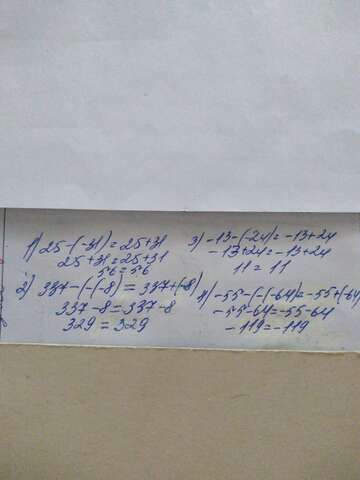 1) 25-(-31)=25+31
25+31=25+31
56=56
2) 337-(-(-8)=337+(-8)
337-8=337-8
329=329
3) -13-(-24)=-13+24
-13+24=-13+24
11=11
4) -55-(-(-64)=-55+(-64)
-55-64=-55-64
-119=-119